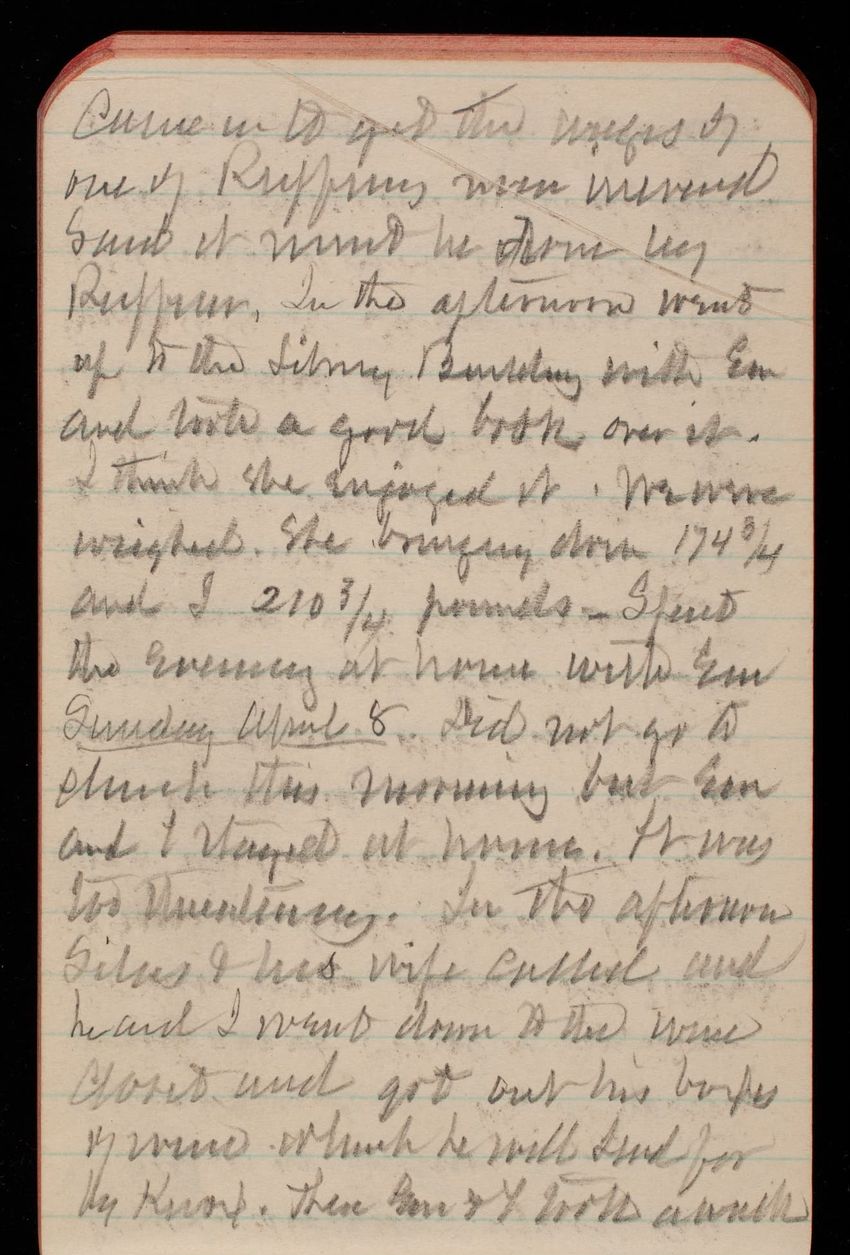 Came in to get the wages of
one of Ruffners men increased
Said it must be done by
Ruffner. In the afternoon went
up to the Library Building with Em
and took a good look over it.
I think she enjoyed it. We were
weighed. She bringing down 174 3/4
and I 210 3/4 pounds - Spent
the evening at home with Em
Sunday April 8. Did not go to
church this morning but Em
and I stayed at home. It was
too threatening. In the afternoon
Silas & his wife called and
he and I went down to the wine
closet and got out his boxes
of wine which he will send for
by Knox. Then Em & I took a walk